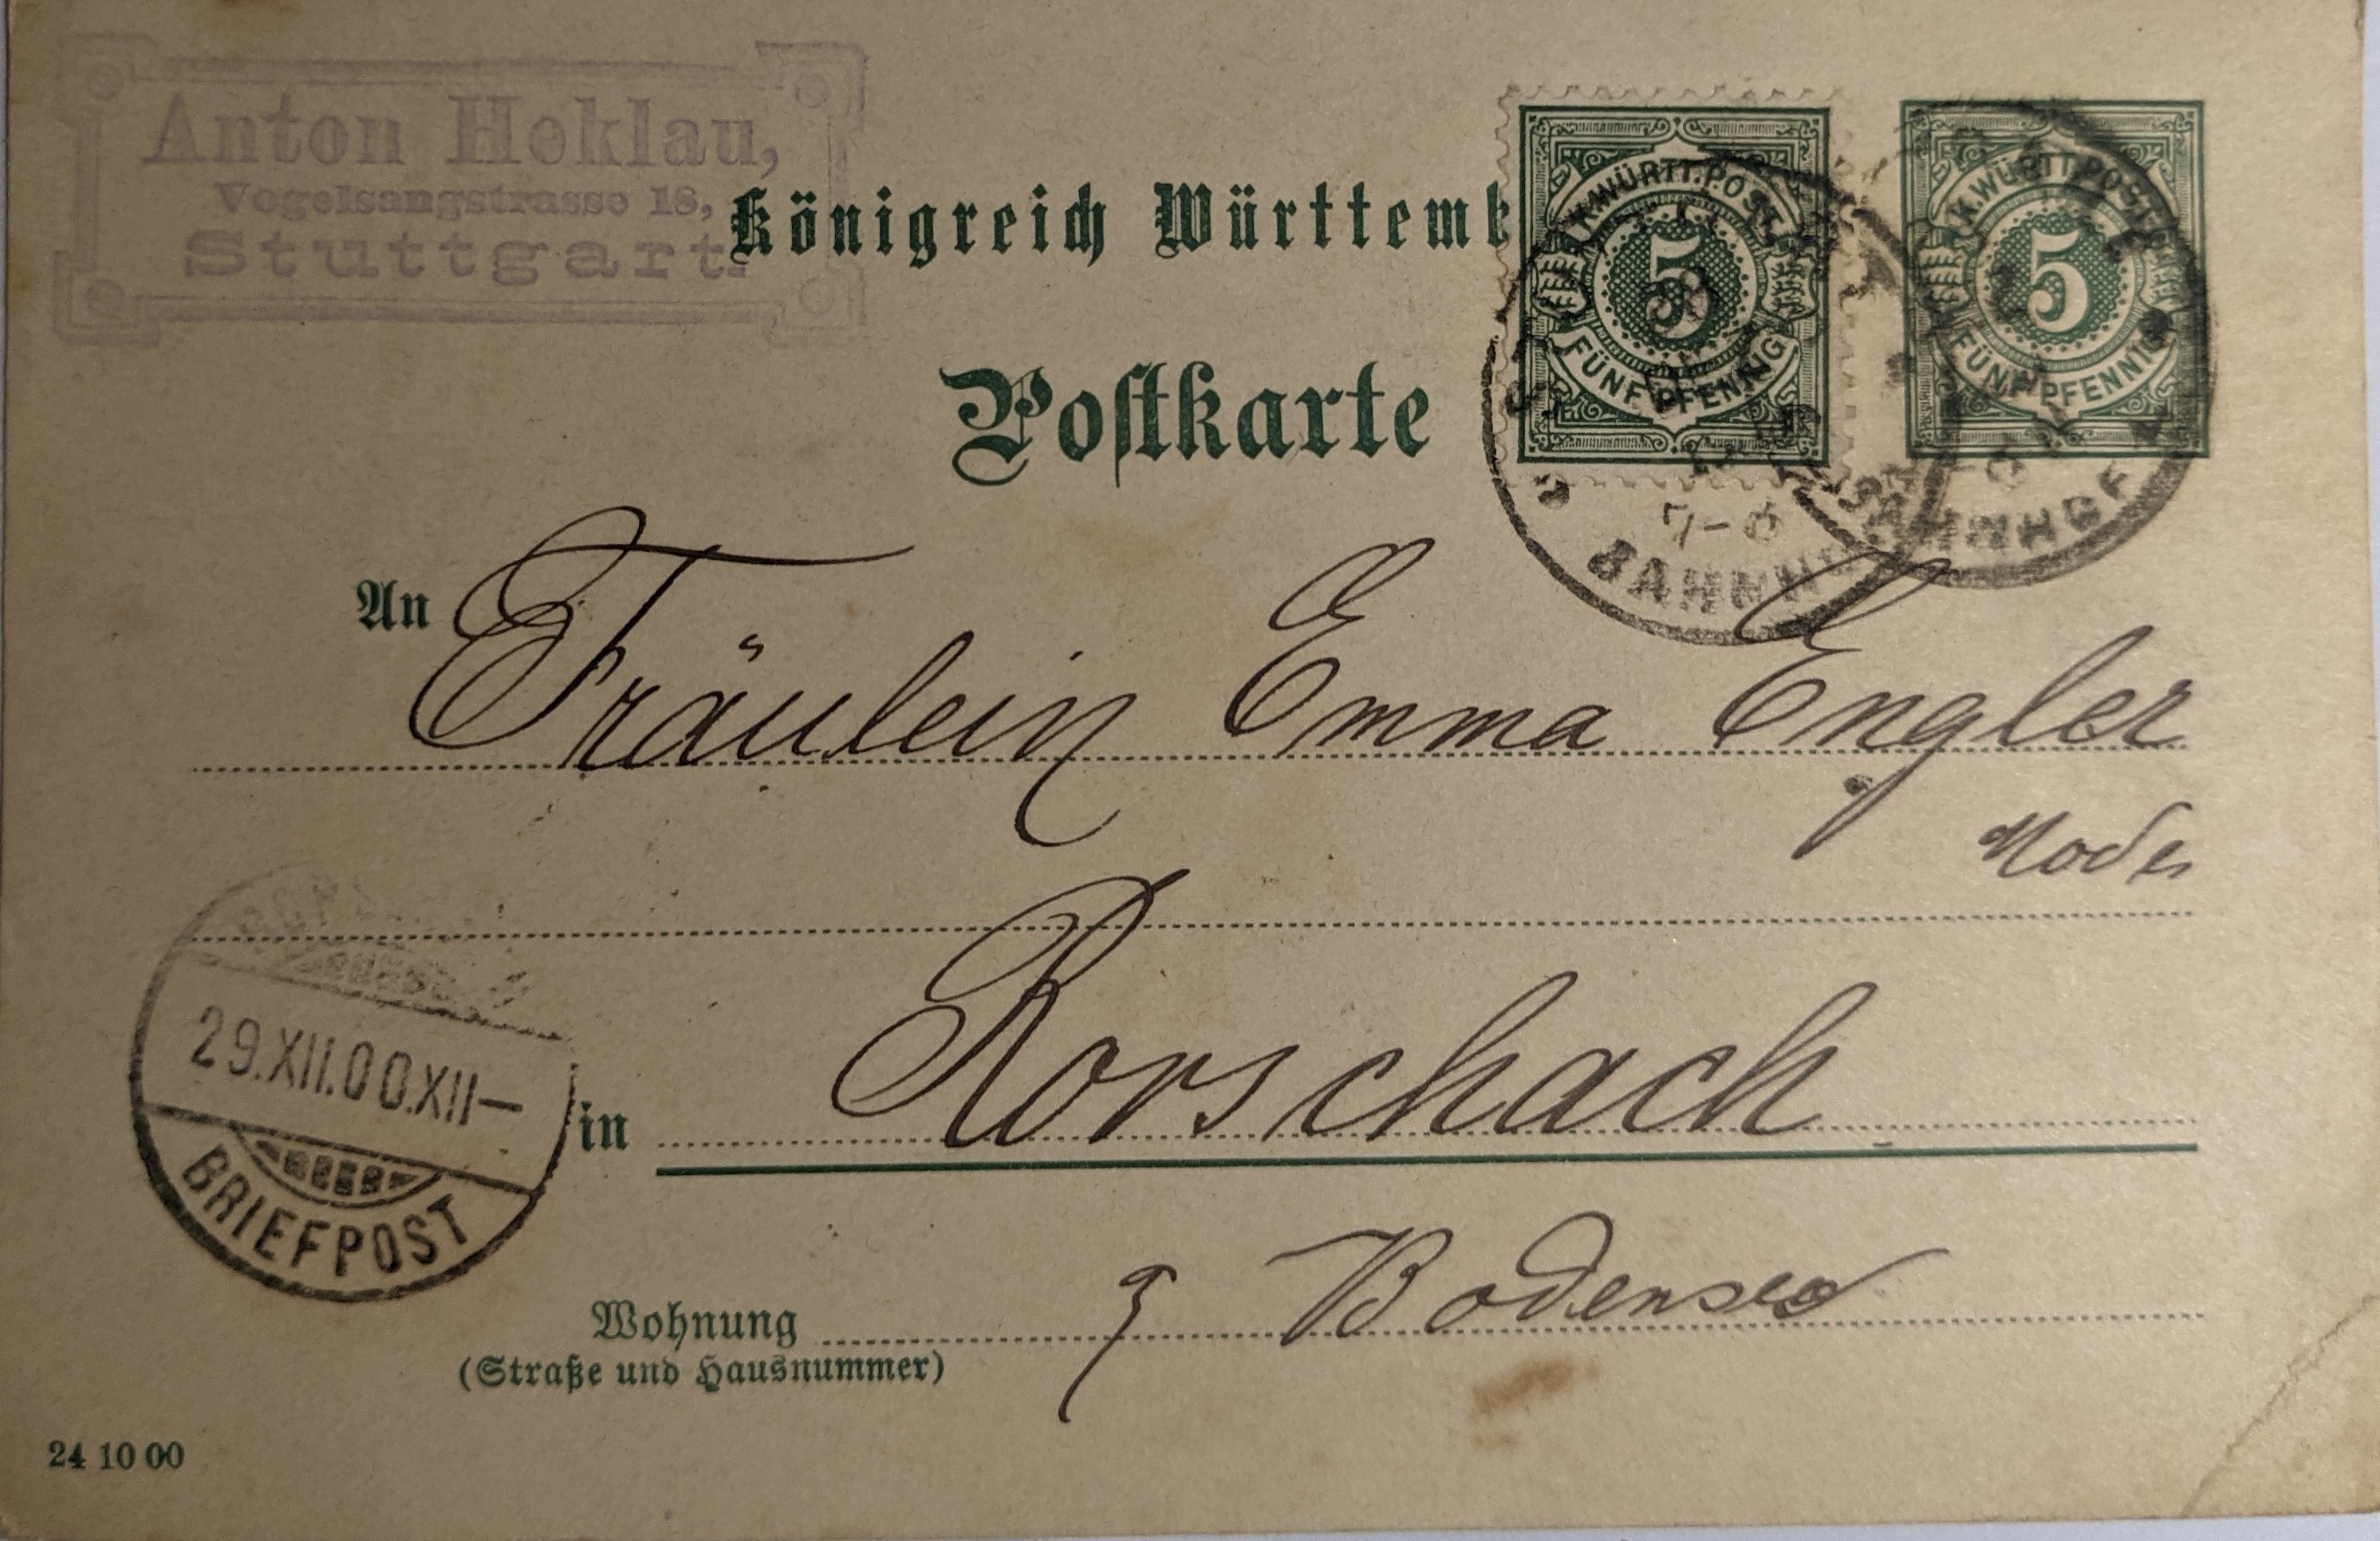 Anton Heklau,
Vogelsangstrasse 18,
Stuttgart.
Königreich Württemb
Postkarte
K.WÜRTT.POST
5
FÜNF PFENNIG
K.WÜRTT.POST
5
FÜNF PFENNIG
7-8
BAHNH
BAHNHOF
An Fräulein Emma Engler
Modes
29.XII.00.XII-
BRIEFPOST
in Rorschach
Wohnung Bodensee
(Straße und Hausnummer)
24 10 00